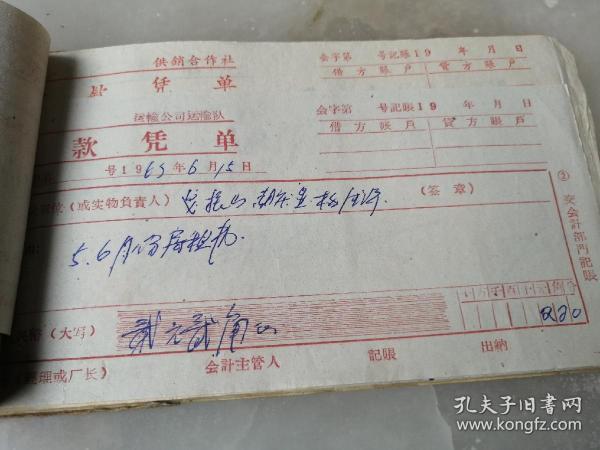 供銷合作社
会字第 号記賬19 年 月 日
凭 单
借方賬戶 貸方賬戶
运輸公司运輸队
会字第 号記賬19 年 月 日
款 凭 单
借方賬戶 貸方賬戶
号1965年6月15日
(或实物負責人)
(签 章)
5.6月份房租札
③ 交会計部門記賬
(大写) 贰元贰角正
220
会計主管人 記賬 出納
理或厂长)
孔夫子旧书网
www.kongfz.com